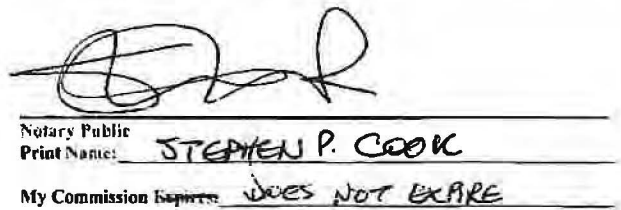 Notary Public
Print Name: STEPHEN P. COOK
My Commission Expires DOES NOT EXPIRE